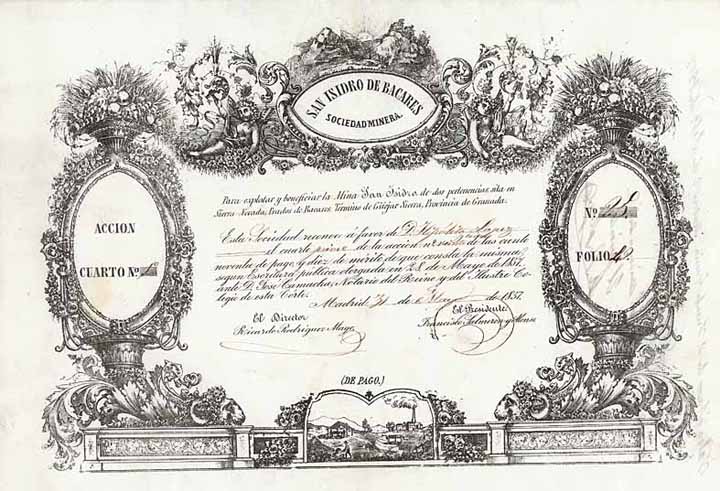 SAN ISIDRO DE BACARES
SOCIEDAD MINERA.
Para explotar y beneficiar la Mina San Isidro, de dos pertenencias sita en
Sierra-Nevada, Prados de Bacares, Término de Güejar Sierra, Provincia de Granada.
Esta Sociedad reconoce á favor de D. Hipolito Lopez
el cuarto primo de la acción nº veinte de las ciento
noventa de pago y diez de mérito de que consta la misma,
segun Escritura pública otorgada en 28 de Mayo de 1857,
ante D. José Camacho, Notario del Reino y del Ilustre Co-
legio de esta Corte.
Madrid 31 de de 1857.
El Director
Ricardo Rodriguez Mayo
El Presidente
Francisco Salmeron y Alonso
ACCION
CUARTO Nº 1
Nº
FOLIO
(DE PAGO.)